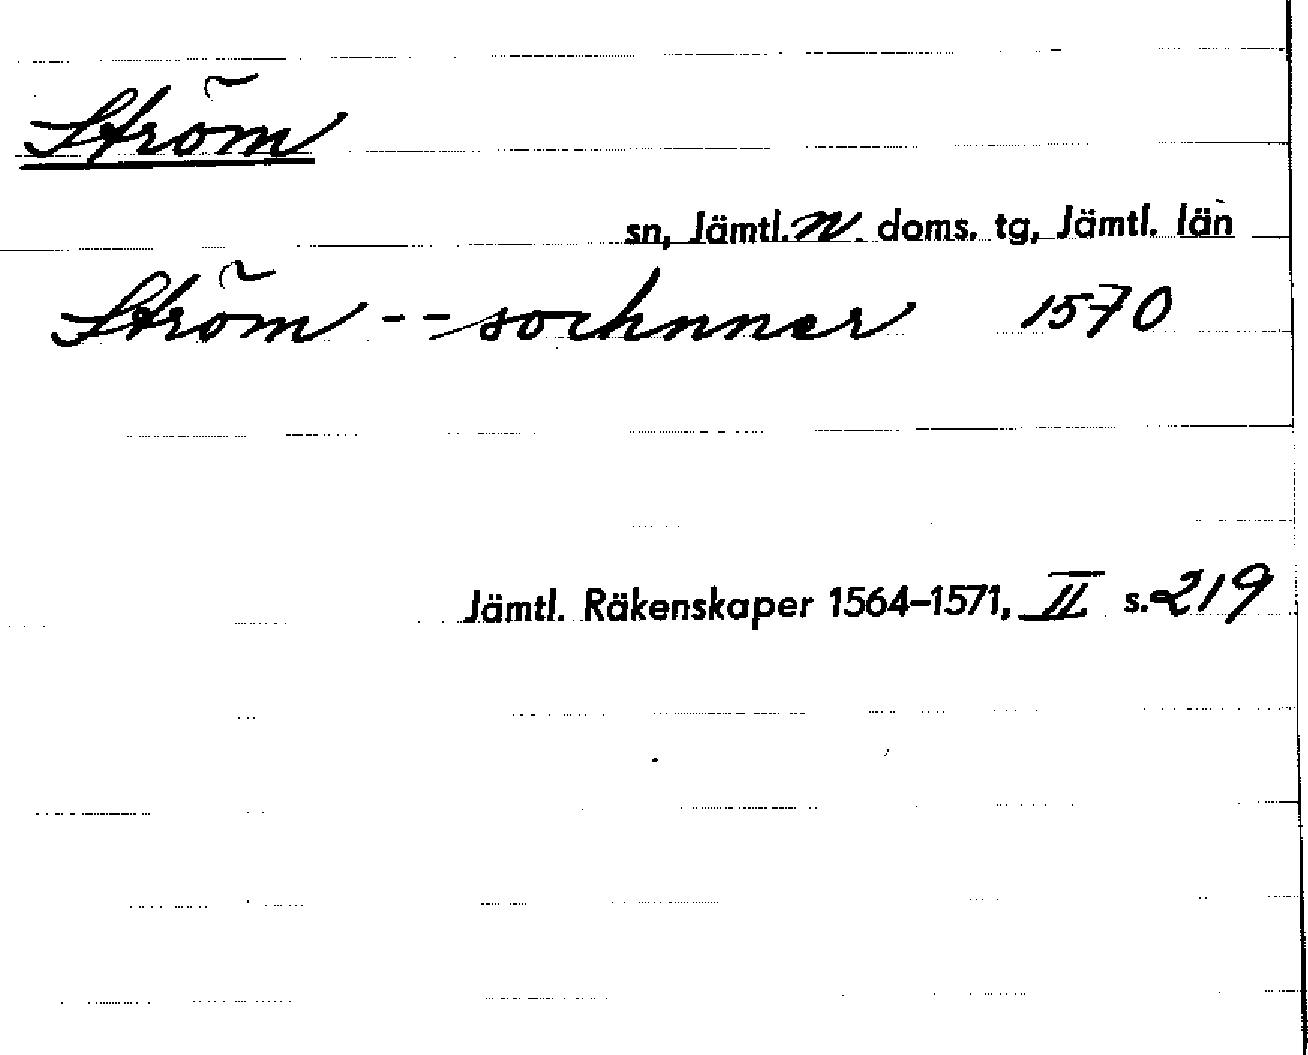 Ström
sn, Jämtl. n. doms. tg, Jämtl. län
Ström -- sochnner 1570
Jämtl. Räkenskaper 1564-1571, II s. 219